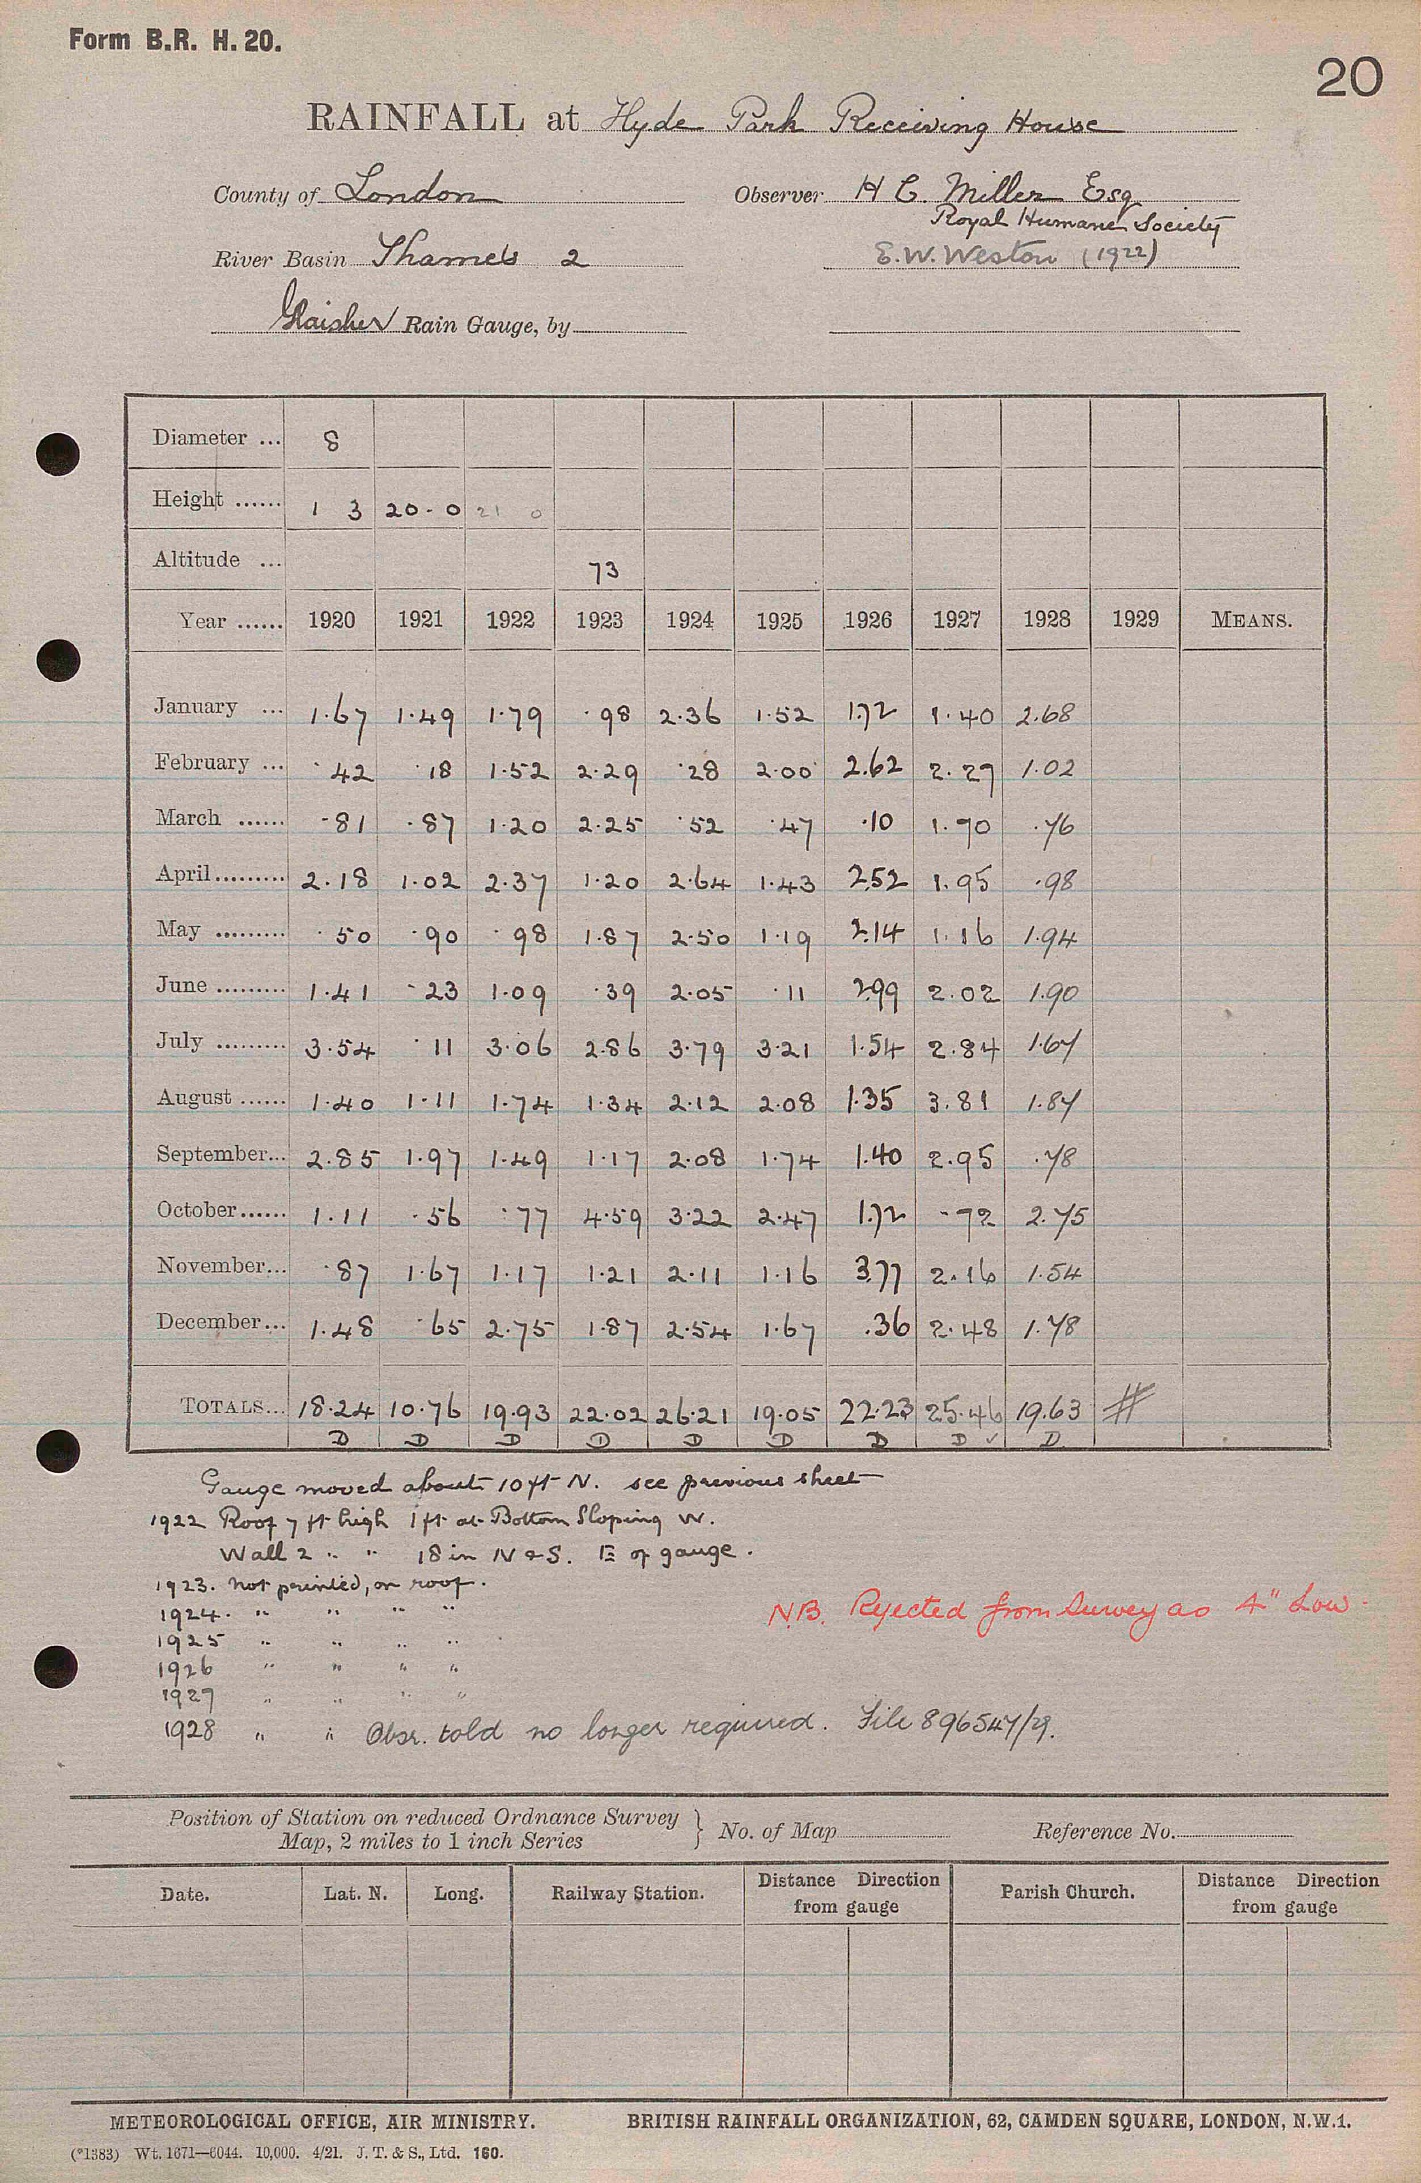 Form B.R. H. 20.
20
RAINFALL at Hyde Park Receiving House
County of London Observer H C. Miller Esq
Royal Humane Society
River Basin Thames 2 E.W. Weston (1922)
Glaisher Rain Gauge, by
Diameter ... 8
Height ...... 1 3 20-0 21 0
Altitude ... 73
Year ...... 1920 1921 1922 1923 1924 1925 1926 1927 1928 1929 MEANS.
January ... 1.67 1.49 1.79 .98 2.36 1.52 1.72 1.40 2.68
February ... .42 .18 1.52 2.29 .28 2.00 2.62 2.27 1.02
March ...... .81 .87 1.20 2.25 .52 .47 .10 1.70 .76
April......... 2.18 1.02 2.37 1.20 2.64 1.43 2.52 1.95 .98
May ......... .50 .90 .98 1.87 2.50 1.19 2.14 1.16 1.94
June ......... 1.41 .23 1.09 .39 2.05 .11 2.99 2.02 1.90
July ......... 3.54 .11 3.06 2.86 3.79 3.21 1.54 2.84 1.67
August ...... 1.40 1.11 1.74 1.34 2.12 2.08 1.35 3.81 1.84
September... 2.85 1.97 1.49 1.17 2.08 1.74 1.40 2.95 .78
October...... 1.11 .56 .77 4.59 3.22 2.47 1.72 .72 2.75
November... .87 1.67 1.17 1.21 2.11 1.16 3.77 2.16 1.54
December... 1.48 .65 2.75 1.87 2.54 1.67 .36 2.48 1.78
TOTALS... 18.24 10.76 19.93 22.02 26.21 19.05 22.23 25.46 19.63 #
D D D D D D D D ✓ D
Gauge moved about 10 ft N. see previous sheet
1922 Roof 7 ft high 1 ft at Bottom Sloping W.
Wall 2 " " 18 in N & S. E of gauge.
1923. not printed, on roof.
1924. " " " "
N.B. Rejected from Survey as 4" Low.
1925 " " " "
1926 " " " "
1927 " " " "
1928 " " Obsr. told no longer required. File 896547/29.
Position of Station on reduced Ordnance Survey
Map, 2 miles to 1 inch Series } No. of Map Reference No.
Date. Lat. N. Long. Railway Station. Distance Direction from gauge Parish Church. Distance Direction from gauge
METEOROLOGICAL OFFICE, AIR MINISTRY. BRITISH RAINFALL ORGANIZATION, 62, CAMDEN SQUARE, LONDON, N.W.1.
(*1383) Wt. 1671—6044. 10,000. 4/21. J. T. & S., Ltd. 160.